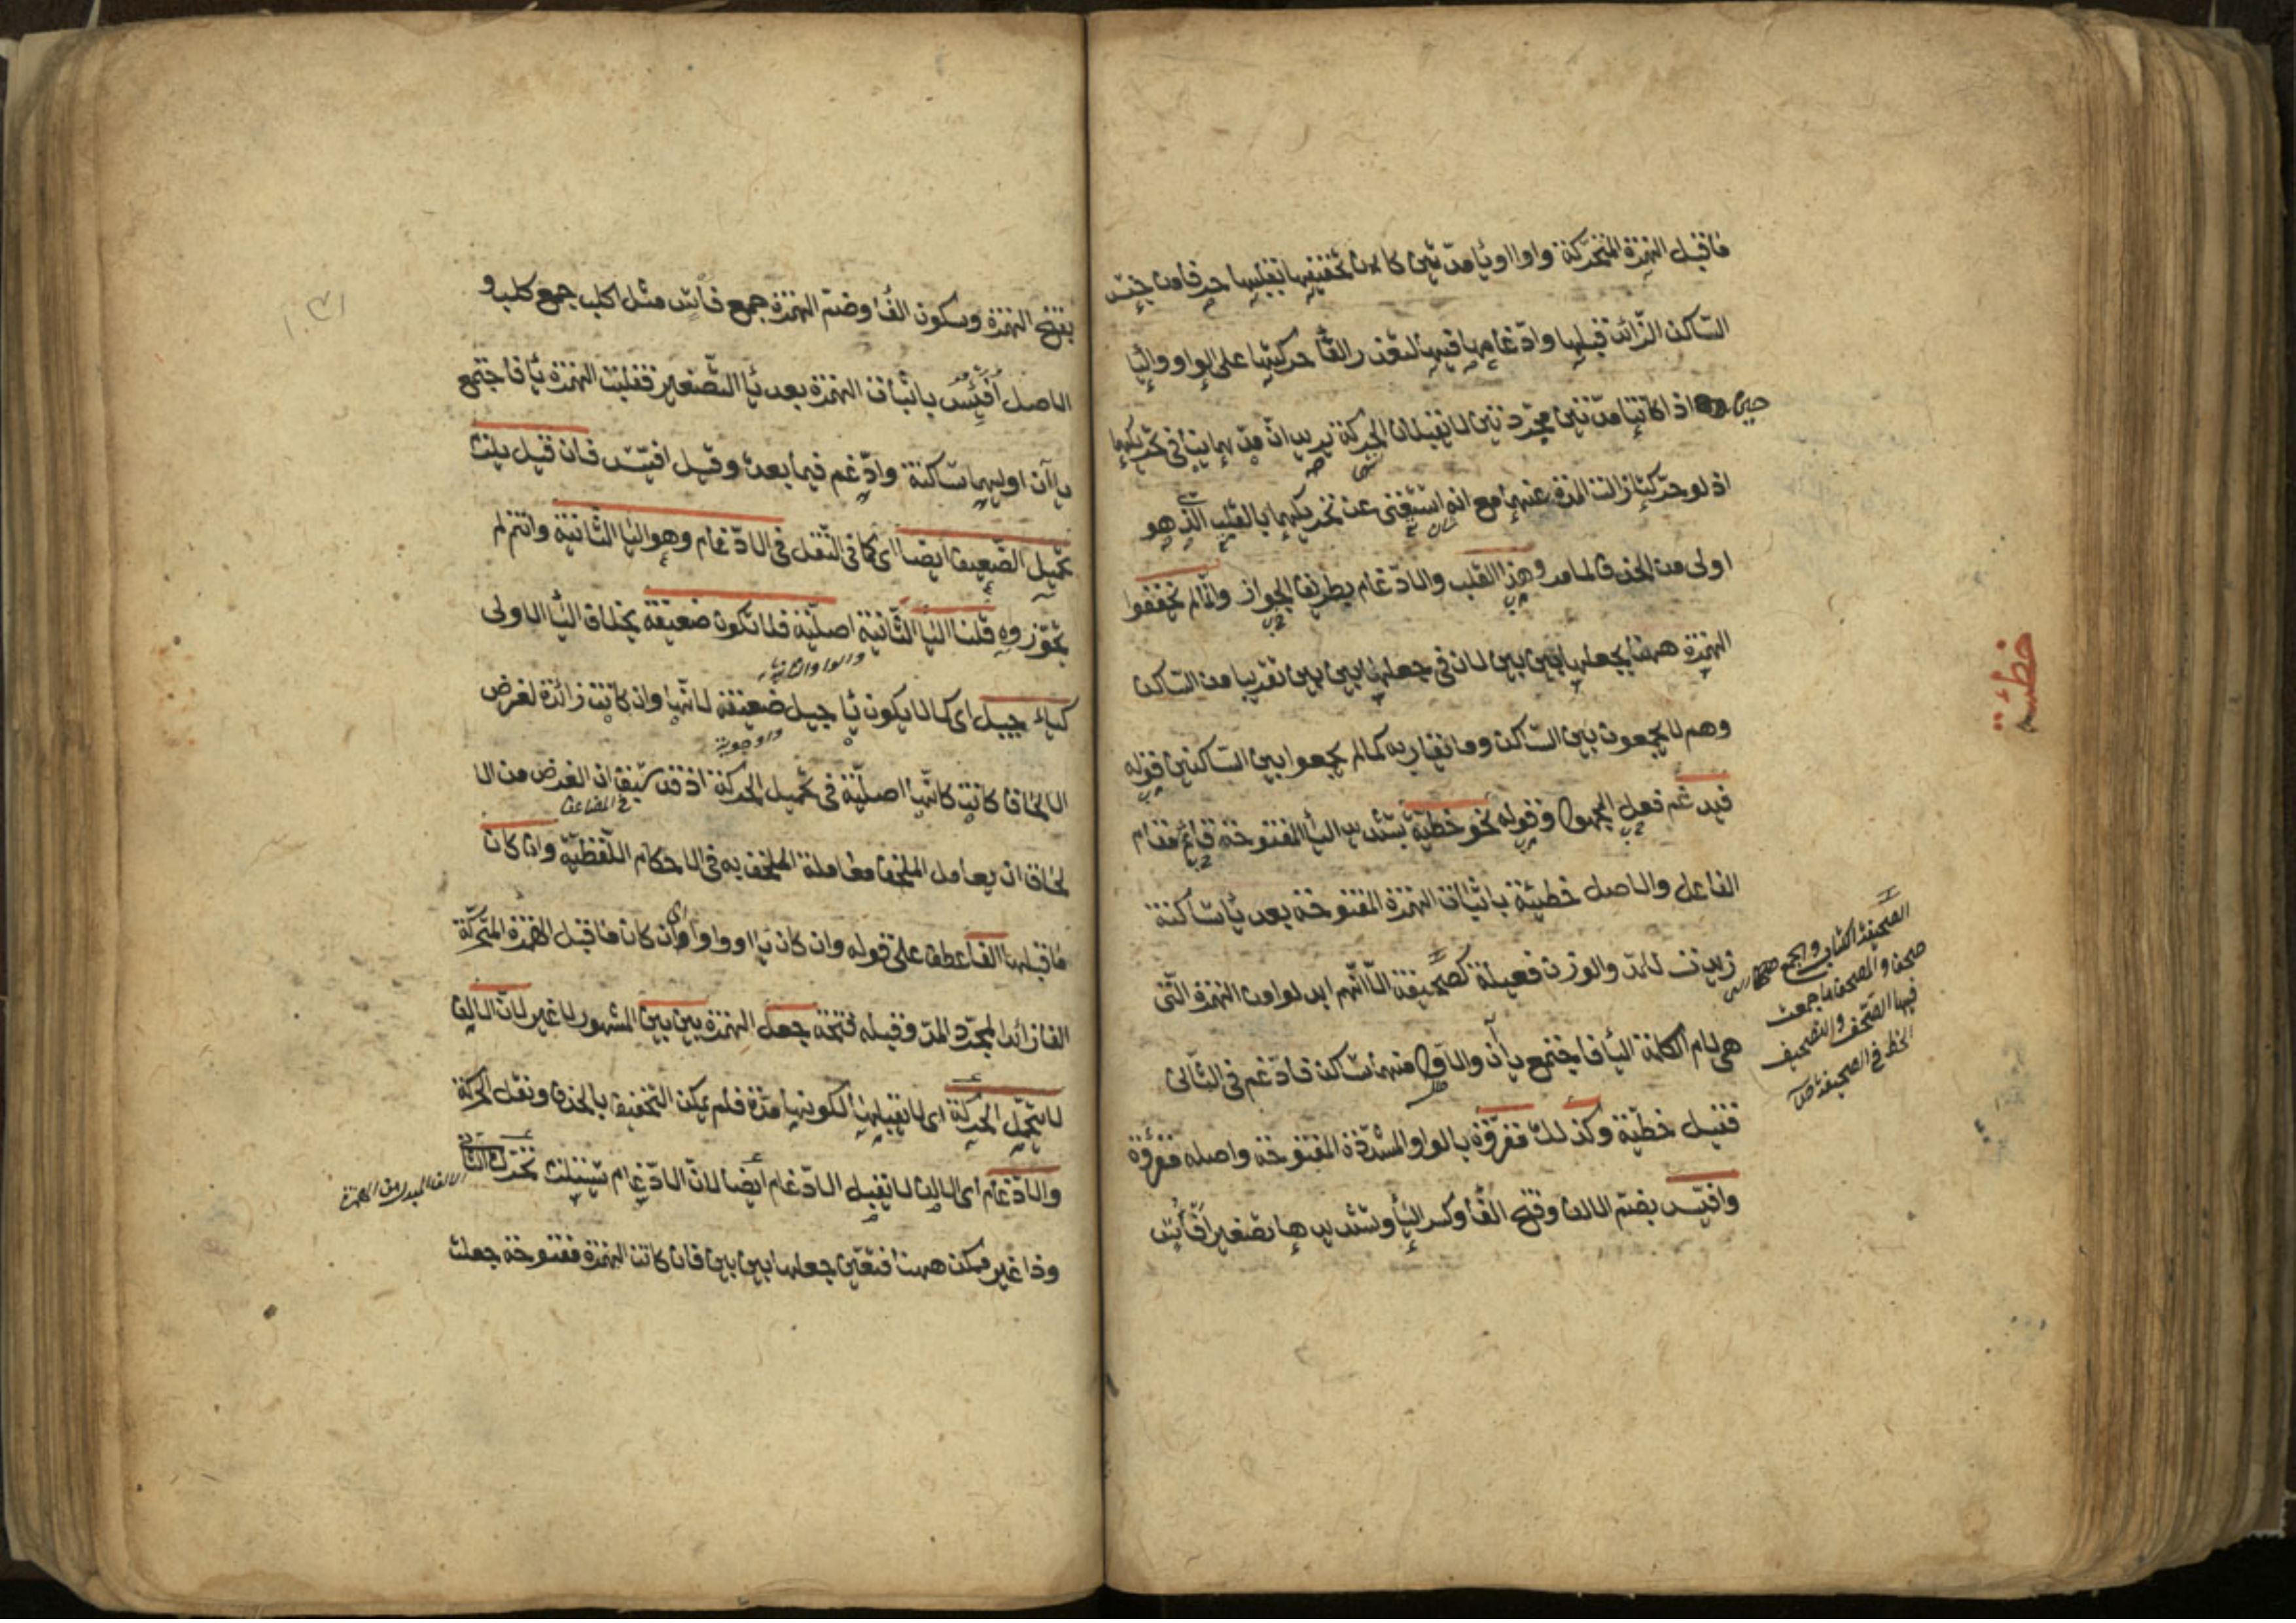 ما قبل الهمزة المتحركة واوا او يا مدتين كان تخفيفها بقلبها حرفا من جنس
الساكن الزائدة قبلها وادغامها فيها لتعذر القا حركتها على الواو واليا
حين اذا كانتا مدتين مجردتين لا تقبلان الحركة يريد ان في تحريكهما
اذ لو حركتا زالت المدة عنهما مع انه استغنى عن تحريكهما بالقلب الذي هو
اولى من الحذف لما مر وهذا القلب والادغام بطريق الجواز وانما لم تخففوا
الهمزة ههنا بجعلها بين بين لان في جعلها بين بين تقريبا من الساكن
وهم لا يجمعون بين الساكن وما تقاربه كما لم يجمعوا بين الساكنين قوله
فيدغم فعل المجهول وقوله نحو خطية بتشديد اليا المفتوحة قائم مقام
الفاعل والاصل خطيئة باثبات الهمزة المفتوحة بعد يا ساكنة
زيدت للمد والوزن فعيلة كصحيفة الا انهم ابدلوا من الهمزة التي
هي لام الكلمة اليا فاجتمع يا آن والاول منهما ساكن فادغم في الثاني
فقيل خطية وكذلك مقروّة بالواو المشددة المفتوحة واصله مقروءة
وافيس بضم الالف وفتح الفا وكسر اليا وتشديدها تصغير افأس
الصحيفة الكتاب والجمع صحف
صحف والمصحف ما جمعت
فيها الصحف والتصحيف
الخطأ في الصحيفة
خطئة
بفتح الهمزة وسكون الفا وضم الهمزة جمع فأس مثل اكلب جمع كلب و
الاصل أفيئس باثبات الهمزة بعد يا التصغير فقلبت الهمزة يا فاجتمع
يا آن اوليهما ساكنة وادغم فيما بعده وقيل افيس فان قيل يلزم
تحميل الضعيف ايضا اى كما في النقل في الادغام وهو اليا الثانية وانتم لم
تجوزوه قلنا اليا الثانية اصلية فلا تكون ضعيفة بخلاف اليا الاولى
والواو الثانية
كياء جيل اى كما لا يكون يا جيل ضعيفة لانها وان كانت زائدة لغرض
الالحاق كانت كانها اصلية في تحميل الحركة اذ قد سبق ان الغرض من الا
لحاق ان يعامل الملحق معاملة الملحق به في الاحكام اللفظية وان كان
ما قبلها الفا عطف على قوله وان كان يا او واوا اى وان كان ما قبل الهمزة المتحركة
الفا زائدا لمجرد المد وقبله فتحة جعل الهمزة بين بين المشهور لا غير لان الالف
لا يتحمل الحركة اى لا تقبلها لكونها مدة فلم يمكن التخفيف بالحذف ونقل الحركة
والادغام اى الالف لا يقبل الادغام ايضا لان الادغام يستلزم تحرك الثاني
الالف المبدل من الهمزة
وذا غير ممكن ههنا فتعين جعلها بين بين فان كانت الهمزة مفتوحة جعلت